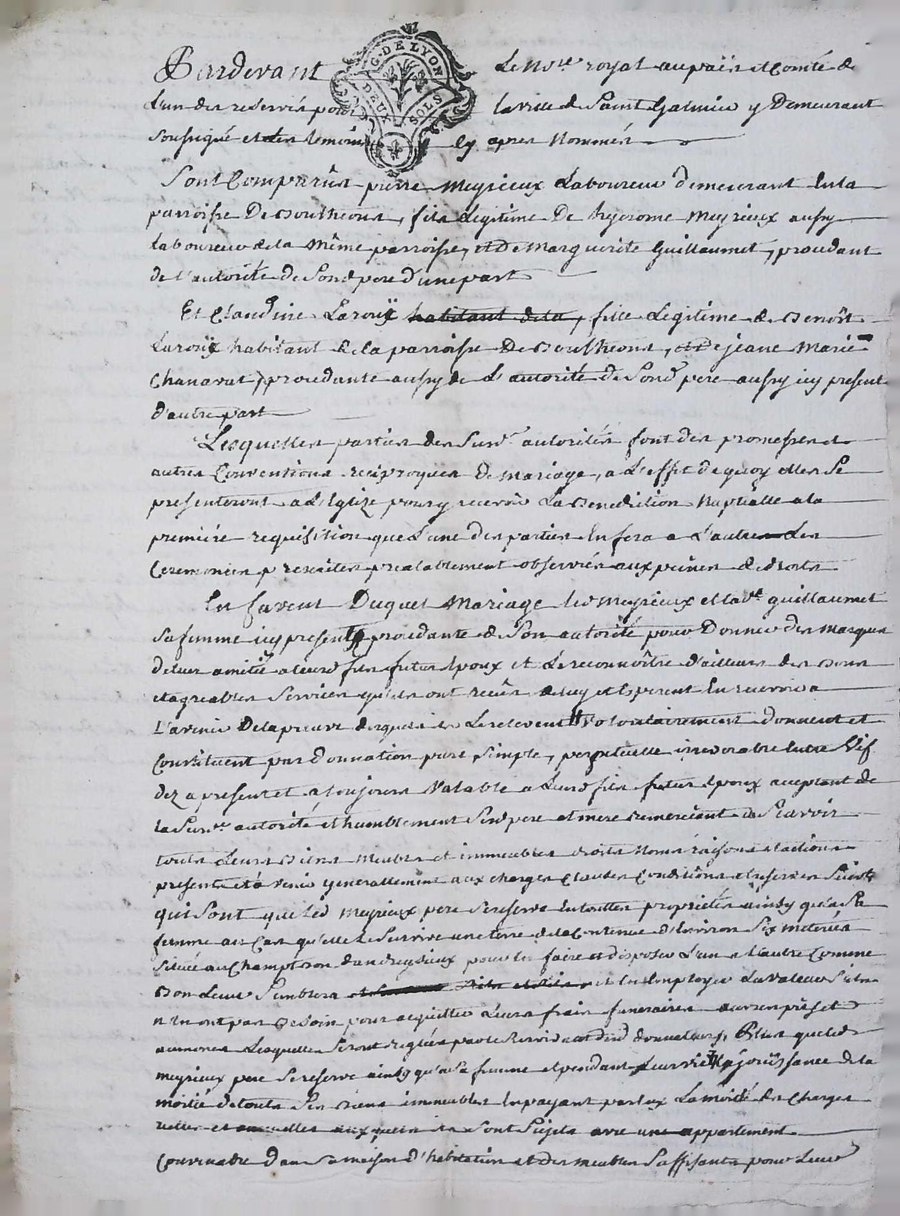 Pardevant Le No.re royal au païs et Comté de
G. DE LYON
DEUX SOLS
L'un des reservés pour la ville de Saint Galmier y Demeurant
soussigné et des temoins cy apres Nommés
Sont Comparus pierre Meyrieux Laboureur demeurant En la
parroisse De Boutheons, fils Legitime De hyerome Meyrieux aussy
Laboureur de la Même parroisse, et De Marguerite Guillaumet, procedant
de l'autorité de Sond pere d'une part
Et Claudine Laroüx habitant de la, fille Legitime de Benoît
Laroüx habitant de la parroisse De Boutheons, et de jeane Marie
Chanavat, procedante aussy de L'autorité de Sond pere aussy icy present
d'autre part
Lesquelles parties des Susd. autorités font des promesses et
autres Conventions reciproques de Mariage, a L'effet de quoy elles Se
presenteront a L'Eglize pour y recevoir La Benediction Nuptialle a la
premiere requisition que L'une des parties En fera a L'autre Les
Ceremonies prescrites prealablement observés aux peines de droits
En faveur Duquel Mariage led Meyrieux et lad. guillaumet
Sa femme icy presents procedante de Son autorité pour Donner des Marques
de leur amitié a leurd fils futur Epoux et Le reconnoître d'ailleurs des Bons
et agreables Services qu'ils ont reçus de luy et Esperent En recevoir a
L'avenir De la preuve desquels ils Le relevent Volontairement donnent et
Constituent par Donnation pure, simple, perpetuelle irrevocable Entre Vif
dez a present et a toujours Valable a Leurd fils futur Epoux acceptant de
la Susd. autorité et humblement Sesd pere et mere remerciant de Scavoir
touts Leurs Biens Meubles et immeubles droits Noms raisons et actions
presents et a venir generallement aux charges Clauses Conditions et reserves Suivts
qui Sont que led Meyrieux pere Se reserve En toutte proprieté ainsy qu'a Sa
femme au Cas qu'elle Le Survive une terre de la Contenue d'Environ Six meterées
Située au Champt d'andrezieux pour En faire et disposer L'un et L'autre Comme
Bon Leur Semblera et En Employer La valeur S'ils
n'En ont pas Besoin pour acquitter Leurs frais funeraires œuvres pies et
aumones Lesquelles Seront reglées par le Survivant desd donnateurs, Plus que led
meyrieux pere Se reserve ainsy qu'a Sa femme et pendant Leur vie La joüissance de la
moitié de touts Ses Biens immeubles En payant par Eux La moitié des Charges
reelles et annuelles auxquelles ils Sont Sujets avec un appartement
Convenable dans Sa maison d'habitation et des meubles Suffisants pour Leur